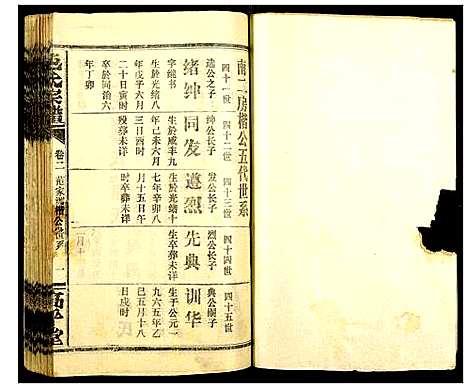 南二房楷公五代世系
四十一世
绪绅
逵公之子
字缙书
生於光绪八
年戊子六月
二十日寅时
卒於同治六
年丁卯
四十二世
同发
绅公长子
生於咸丰九
年己未六月
三日酉时
殁葬未详
四十三世
遵烈
发公长子
生於光绪十
七年辛卯八
月十五日午
时卒葬未详
四十四世
先典
烈公长子
生卒葬未详
四十五世
训华
典公嗣子
生于公元一
九六五年乙
巳五月十八
日戌时
氏宗谱
卷二
范家
楷公世系
一
堂